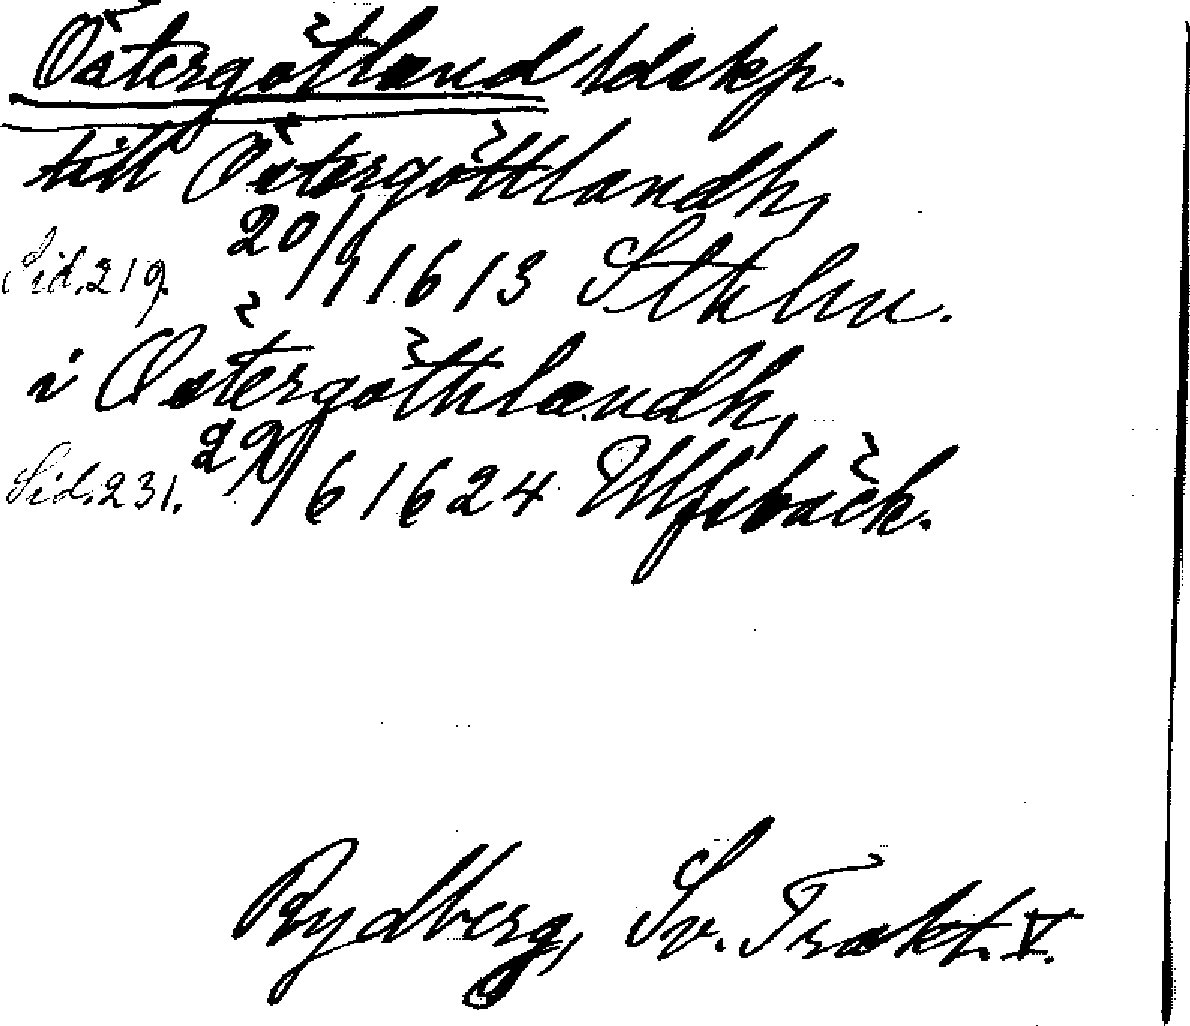 Östergötland ldskp.
till Östergöttlandh,
Sid. 219. 20/1 1613 Sthlm.
i Östergöthlandh,
Sid. 231. 29/6 1624 Ulfsbäck.
Rydberg, Sv. Trakt. V.